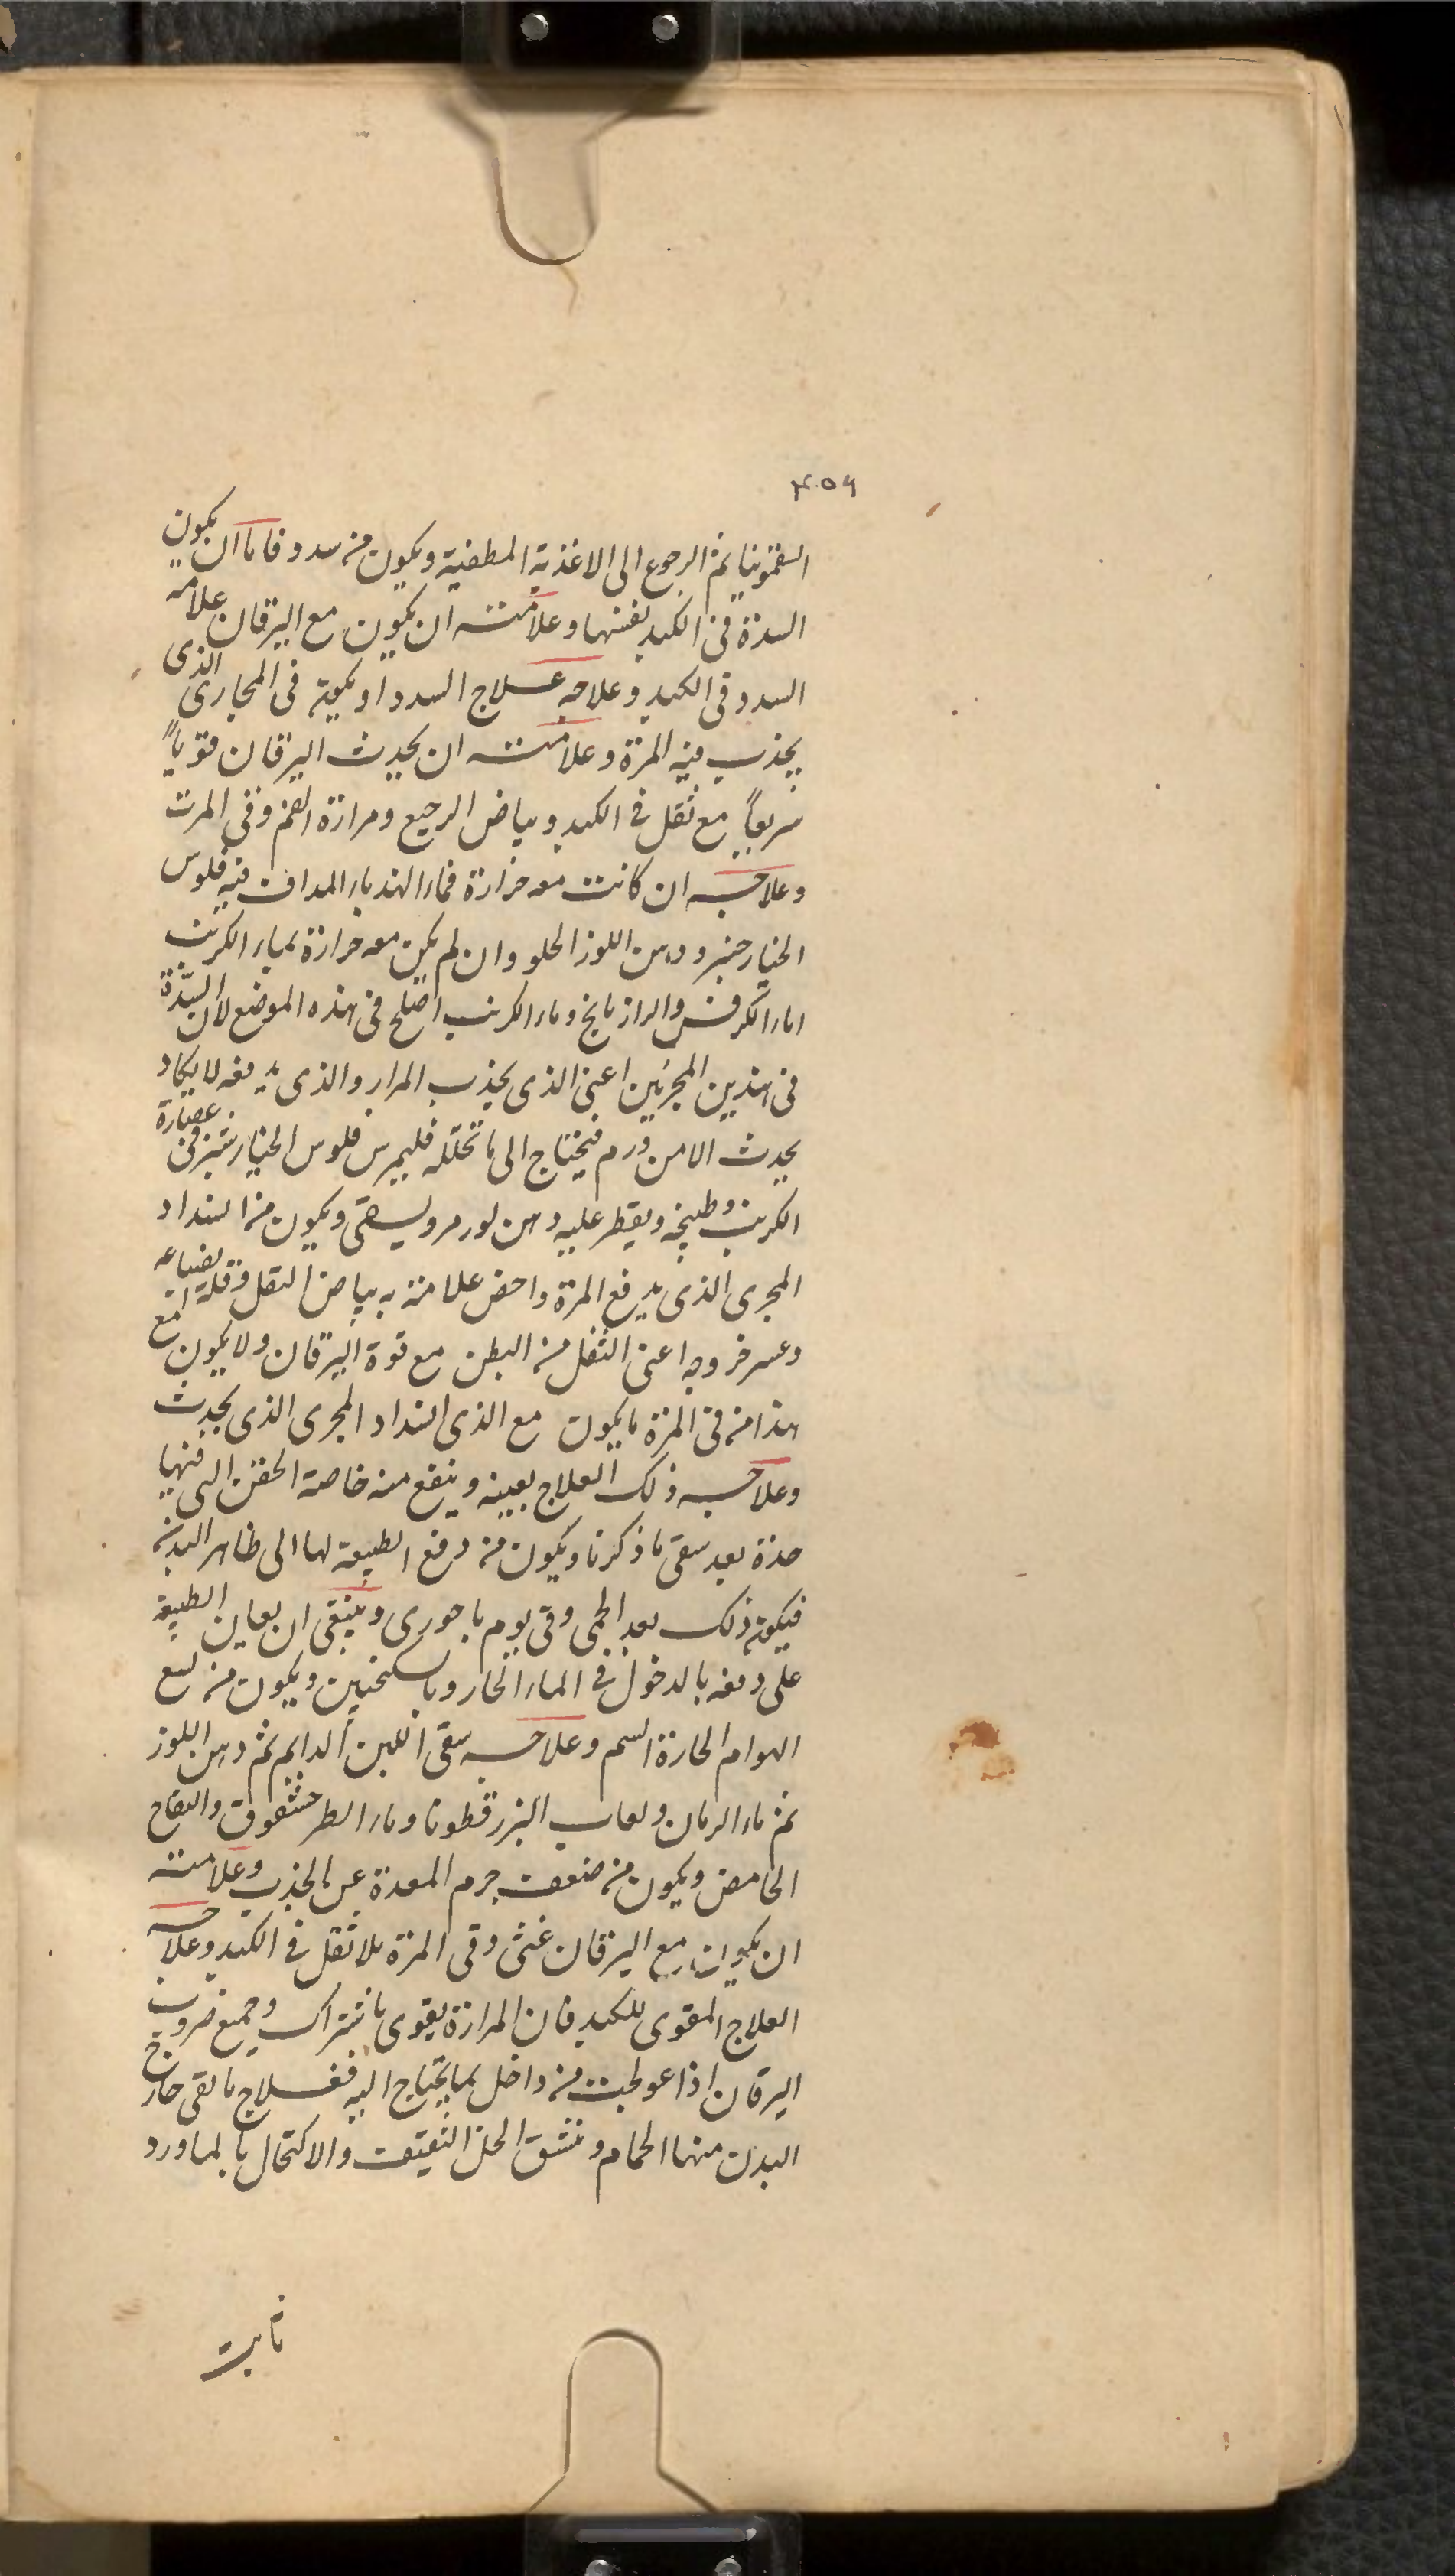 ۴۵۹
السقمونيا ثم الرجوع الى الاغذية المطفئية ويكون من سدد فاما ان يكون
السدة فى الكبد نفسها وعلامته ان يكون مع اليرقان علامة
السدد فى الكبد وعلاجه علاج السدد او يكون فى المجارى الذى
يجذب فيه المرة وعلامته ان يحدث اليرقان قوياً
سريعاً مع ثقل فى الكبد وبياض الرجيع ومرارة الفم وقى المرت
وعلاجه ان كانت معه حرارة فماء الهندباء المداف فيه فلوس
الخيار شنبر ودهن اللوز الحلو وان لم يكن معه حرارة بماء الكرنب
اماء الكرفس والرازيانج وماء الكرنب اصلح فى هذه الموضع لان السدّة
فى هذين المجريين اعنى الذى يجذب المرار والذى يدفعه لا يكاد
يحدث الا من ورم فيحتاج الى ما تحلله فليمرس فلوس الخيار شنبر فى عصارة
الكرنب وطبيخه ويقطر عليه دهن لوز مر ويسقى ويكون من انسداد
المجرى الذى يدفع المرة واخص علامته به بياض الثقل وقلة انصباغه
وعسر خروجه اعنى الثفل من البطن مع قوة اليرقان ولا يكون مع
هذا من قى المرة ما يكون مع الذى انسداد المجرى الذى يحدث
وعلاجه ذلك العلاج بعينه وينفع منه خاصة الحقن التى فيها
حدة بعد سقى ما ذكرنا ويكون من دفع الطبيعة لها الى ظاهر البدن
فيكون ذلك بعد الحمى وفى يوم باحورى وينبغى ان يعاين الطبيعة
على دفعه بالدخول فى الماء الحار وبالسكنجبين ويكون من لسع
الهوام الحارة السم وعلاجه سقى اللبن الدايم ثم دهن اللوز
ثم ماء الرمان ولعاب البزر قطونا وماء الطرحشقوق والتفاح
الحامض ويكون من ضعف جرم المعدة عن الجذب وعلامته
ان يكون مع اليرقان غثى وقى المرة بلا ثقل فى الكبد وعلاجه
العلاج المقوى للكبد فان المرارة يقوى باشتراك وجميع ضروب
اليرقان اذا عولجت من داخل بما يحتاج اليه فعلاج ما بقى خارج
البدن منها الحمام وتنشق الخل الثقيف والاكتحال بالماورد
ثابت